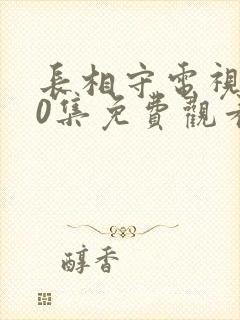 長相守電視
0集免費觀
醇香